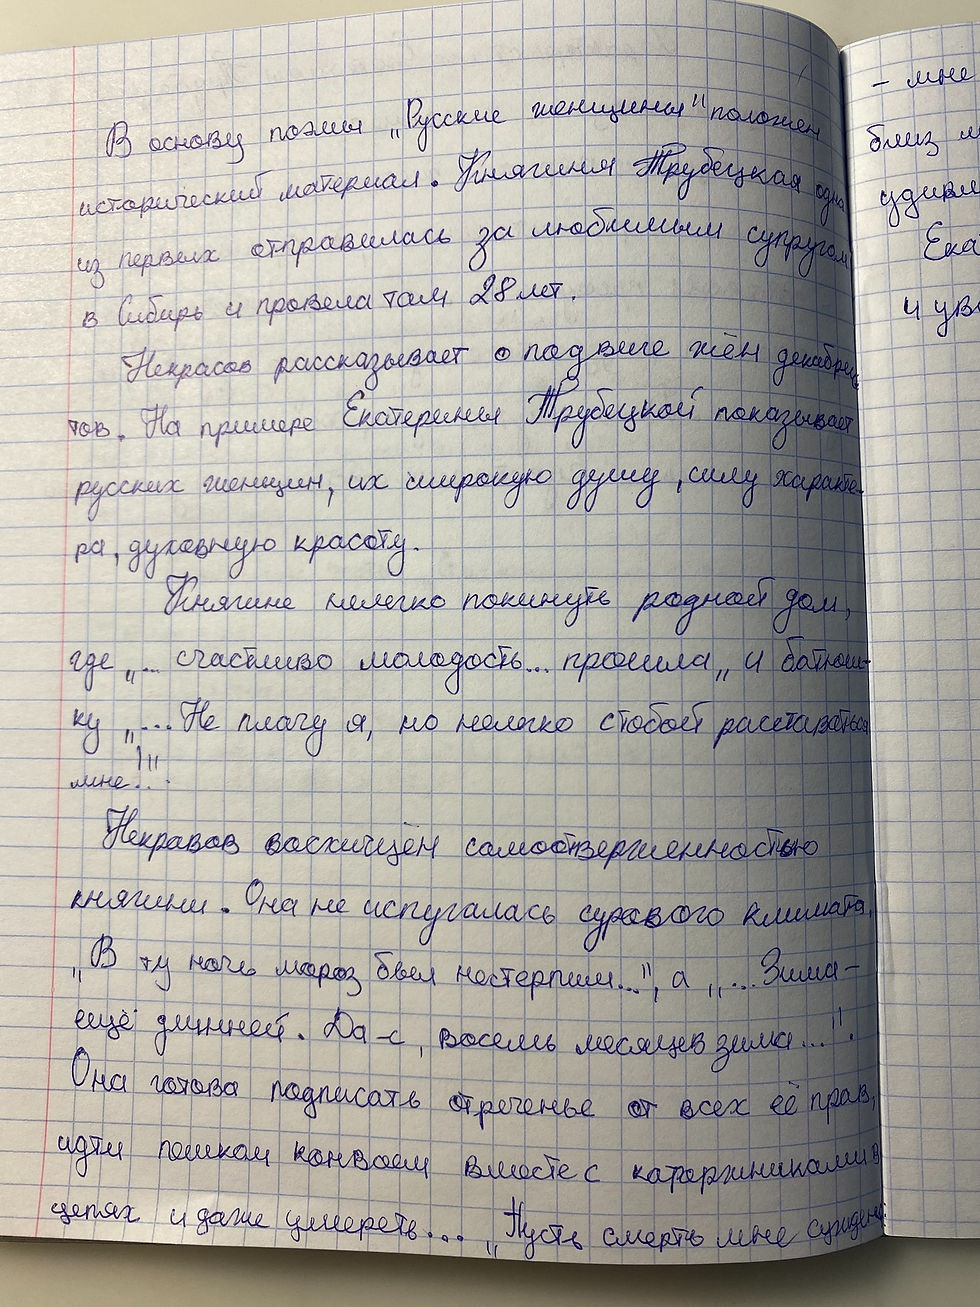 В основу поэмы „Русские женщины" положен
исторический материал. Княгиня Трубецкая одна
из первых отправилась за любимым супругом
в Сибирь и провела там 28 лет.
Некрасов рассказывает о подвиге жён декабрис
тов. На примере Екатерины Трубецкой показывает
русских женщин, их широкую душу, силу характе-
ра, духовную красоту.
Княгине нелегко покинуть родной дом,
где „... счастливо молодость... прошла„ и батюш-
ку „... Не плачу я, но нелегко стобой расставаться
мне!..".
Некравов восхищён самоотверженностью
княгини. Она не испугалась сурового климата.
„В ту ночь мороз был нестерпим...", а „... Зима –
ещё длинней. Да-с, восемь месяцев зима...".
Она готова подписать отреченье от всех её прав,
идти пешком конвоем вместе с каторжниками в
цепях и даже умереть... „Пусть смерть мне суждена
– мне
близ
Ека
и ув